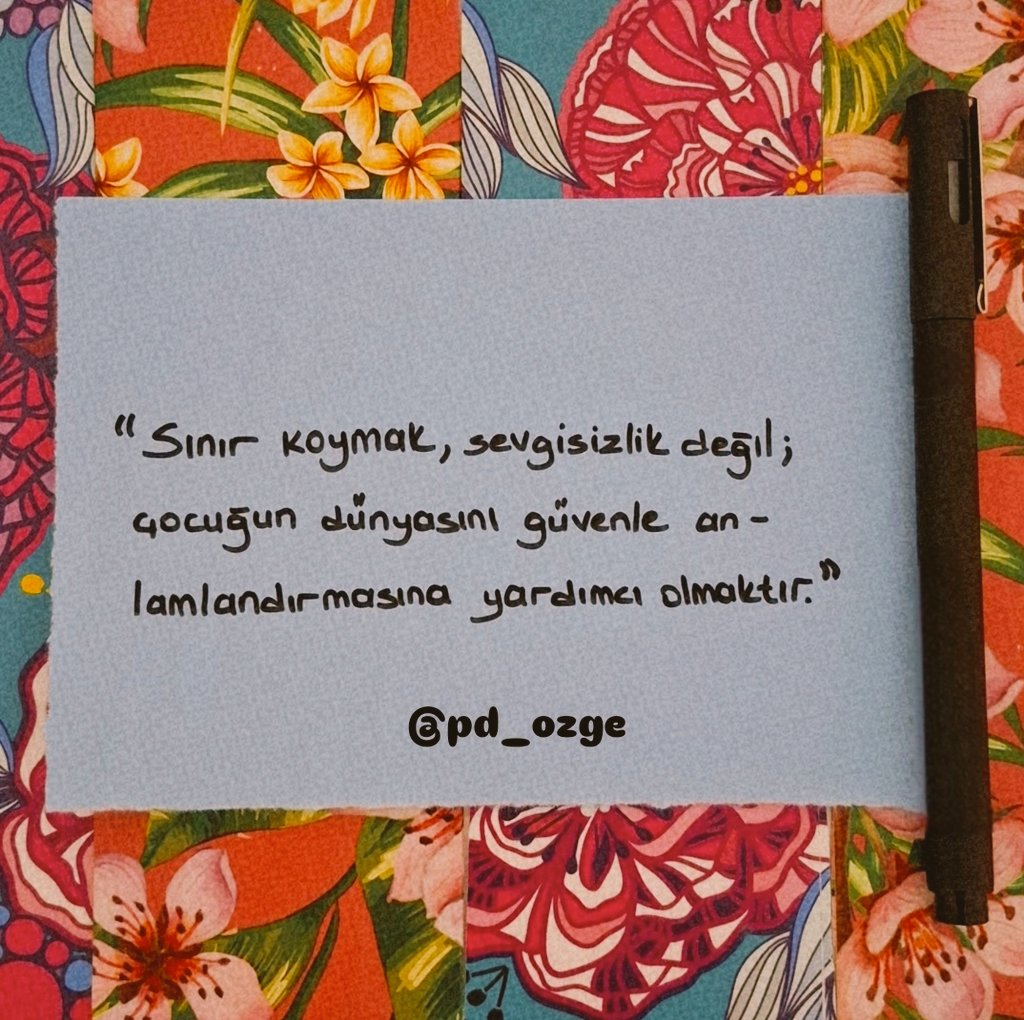 “Sınır koymak, sevgisizlik değil;
çocuğun dünyasını güvenle an-
lamlandırmasına yardımcı olmaktır.”
@pd_ozge